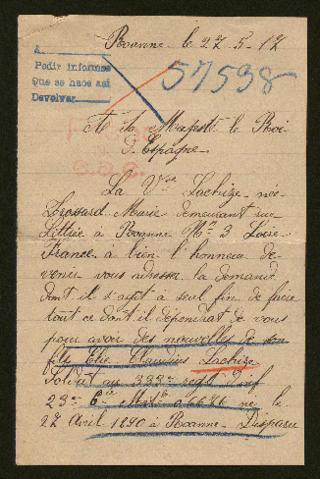 Roanne le 27-5-17
A
Pedir informes
Que se hace así
Devolver
57598
A sa Majesté le Roi
d'Espagne
La Vve Lachize née
Frossard Marie demeurant rue
Littrée à Roanne No 3 Loire
France à bien l'honneur de
venir vous adresser la demande
dont il s'agit à seul fin de faire
tout ce dont il dépendrat de vous
pour avoir des nouvelles de son
fils Elie Claudius Lachize
Soldat au 333e regt d'inf
23e Cie Mle né le
27 Avril 1890 à Roanne. Disparu